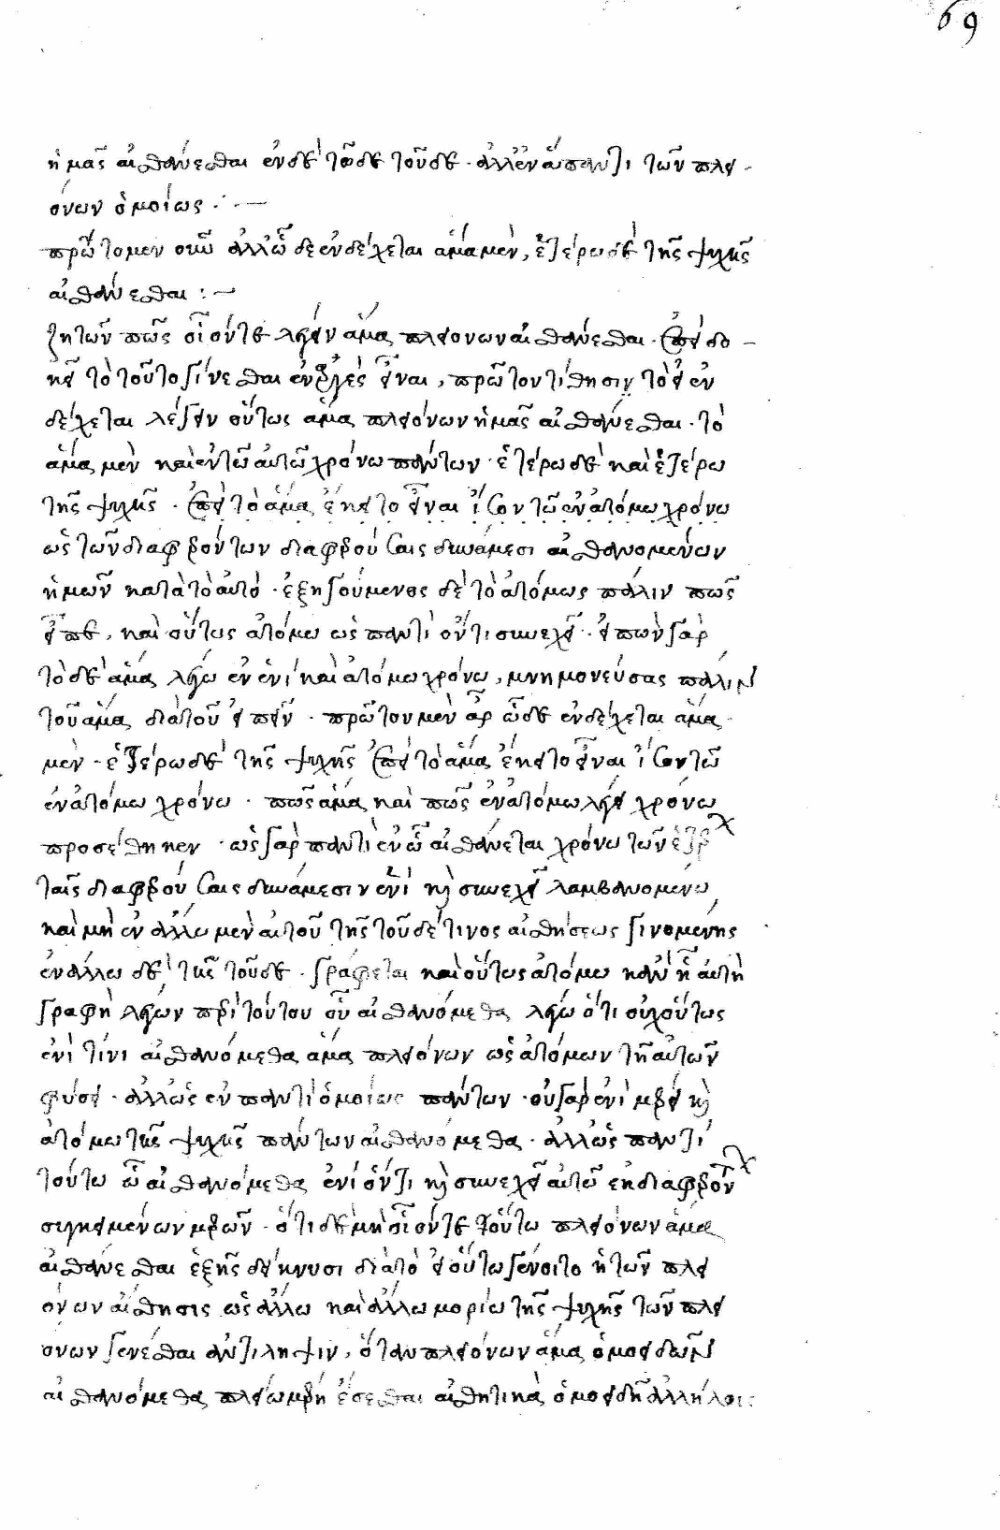 69
ἡμᾶς αἰσθάνεσθαι ἐν δὲ τῷδε τοῦδε · ἀλλ' ἐν ἅπαντι τῶν πλει-
όνων ὁμοίως ·
πρῶτον μὲν οὖν ἀλλ' ὧδε ἐνδέχεται ἅμα μὲν, ἑτέρῳ δὲ τῆς ψυχῆς
αἰσθάνεσθαι :
ζητῶν πῶς οἷόν τε λέγειν ἅμα πλειόνων αἰσθάνεσθαι · ἐπεὶ δο-
κεῖ τὸ τοῦτο γίνεσθαι ἐναργὲς εἶναι, πρῶτον τίθησιν τὸ εἰ ἐν
δέχεται λέγειν οὕτως ἅμα πλειόνων ἡμᾶς αἰσθάνεσθαι · τὸ
ἅμα μὲν καὶ ἐν τῷ αὐτῷ χρόνῳ πάντων · ἑτέρῳ δὲ καὶ ἑτέρῳ
τῆς ψυχῆς · ἐπεὶ τὸ ἅμα ἔκειτο εἶναι ἴσον τῷ ἐν ἀτόμῳ χρόνῳ
ὡς τῶν διαφερόντων διαφερούσαις δυνάμεσι αἰσθανομένων
ἡμῶν κατὰ τὸ αὐτό · ἐξηγούμενος δὲ τὸ ἀτόμως πάλιν πῶς
εἶπε, καὶ οὕτως ἀτόμῳ ὡς παντὶ ὄντι συνεχεῖ · εἰπὼν γὰρ
τὸ δὲ ἅμα λέγω ἐν ἑνὶ καὶ ἀτόμῳ χρόνῳ, μνημονεύσας πάλιν
τοῦ ἅμα διὰ τοῦ εἰπεῖν · πρῶτον μὲν ἆρ' ὧδε ἐνδέχεται ἅμα
μὲν · ἑτέρῳ δὲ τῆς ψυχῆς ἐπεὶ τὸ ἅμα ἔκειτο εἶναι ἴσον τῷ
ἐν ἀτόμῳ χρόνῳ · πῶς ἅμα καὶ πῶς ἐν ἀτόμῳ λέγει χρόνῳ
προσέθηκεν · ὡς γὰρ παντὶ ἐν ᾧ αἰσθάνεται χρόνῳ τῶν ἑτέρ
ταῖς διαφερούσαις δυνάμεσιν ἑνὶ καὶ συνεχεῖ λαμβανομένῳ
καὶ μὴ ἐν ἄλλῳ μὲν αὐτοῦ τῆς τοῦδέ τινος αἰσθήσεως γινομένης
ἐν ἄλλῳ δὲ τῆς τοῦδε · γράφεται καὶ οὕτως ἀτόμῳ κἂν ᾖ αὕτη
γραφὴ λέγων περὶ τούτου οὗ αἰσθανόμεθα λέγω ὅτι οὐχ οὕτως
ἑνί τινι αἰσθανόμεθα ἅμα πλειόνων ὡς ἀτόμων τῇ αὐτῶν
φύσει · ἀλλ' ὡς ἐν παντὶ ὁμοίως πάντων · οὐ γὰρ ἑνὶ μέρει καὶ
ἀτόμῳ τῆς ψυχῆς πάντων αἰσθανόμεθα · ἀλλ' ὡς παντὶ
τούτῳ ᾧ αἰσθανόμεθα ἑνὶ ὄντι καὶ συνεχεῖ αὐτῷ ἐκ διαφερόντ
συγκειμένων μερῶν · ὅτι δὲ μὴ οἷόν τε τούτῳ πλειόνων ἅμα
αἰσθάνεσθαι ἑξῆς δείκνυσι διὰ τὸ εἰ οὕτω γένοιτο ἡ τῶν πλει
όνων αἴσθησις ὡς ἄλλῳ καὶ ἄλλῳ μορίῳ τῆς ψυχῆς τῶν πλει
όνων γενέσθαι ἀντίληψιν, ὅταν πλειόνων ἅμα ὁμοειδῶν
αἰσθανόμεθα πλείω μέρη ἔσεσθαι αἰσθητικὰ ὁμοειδῆ ἀλλήλοις